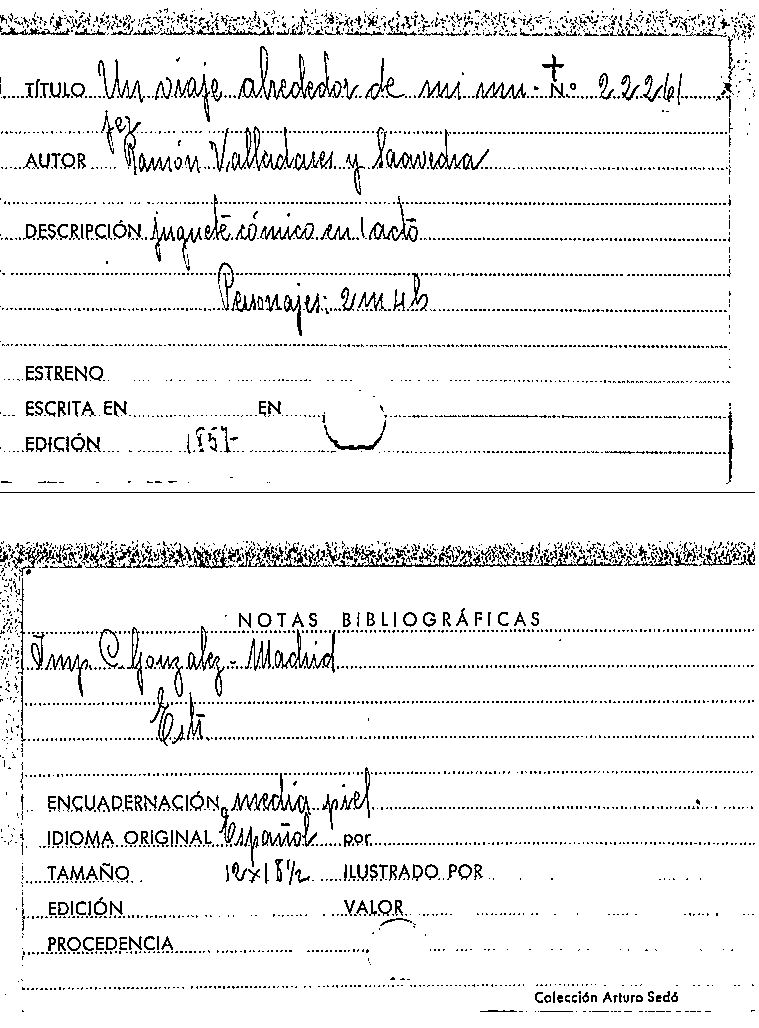 TÍTULO Un viaje alrededor de mi mu- N.º 22261
jer
AUTOR Ramón Valladares y Saavedra
DESCRIPCIÓN juguete cómico en 1 acto
Personajes: 2 m 4 h
ESTRENO
ESCRITA EN EN
EDICIÓN 1857-
NOTAS BIBLIOGRÁFICAS
Imp C. Gonzalez - Madrid
ENCUADERNACIÓN media piel
IDIOMA ORIGINAL Español por
TAMAÑO 12x18½ ILUSTRADO POR
EDICIÓN VALOR
PROCEDENCIA
Colección Arturo Sedó